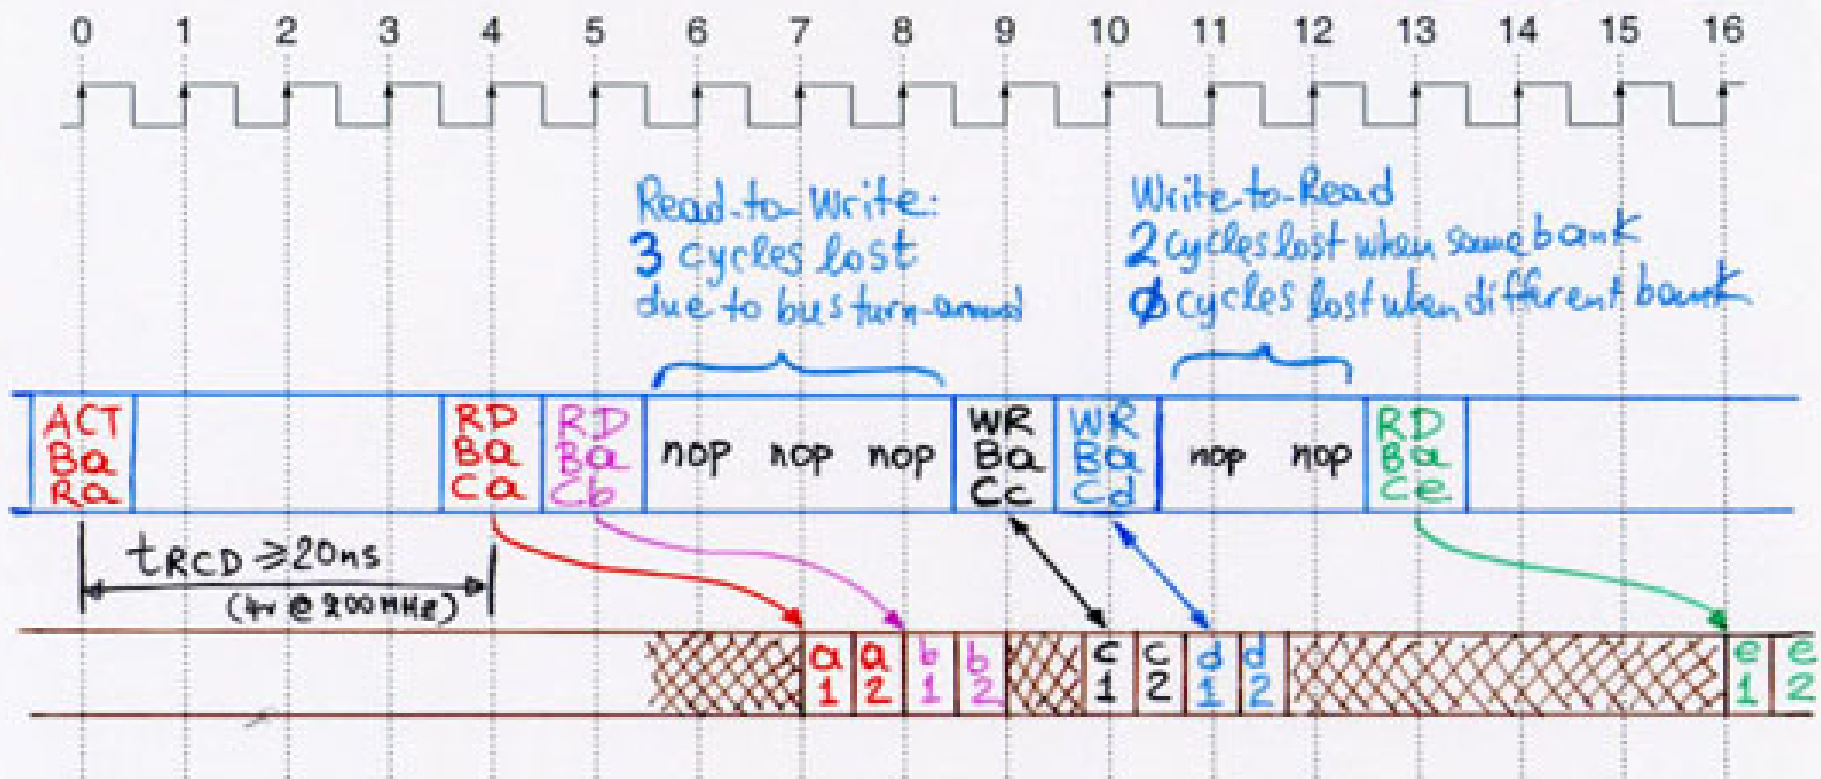 0 1 2 3 4 5 6 7 8 9 10 11 12 13 14 15 16
Read-to-Write:
3 cycles lost
due to bus turn-around
Write-to-Read
2 cycles lost when same bank
0 cycles lost when different bank
ACT
Ba
Ra
RD
Ba
Ca
RD
Ba
Cb
nop nop nop
WR
Ba
Cc
WR
Ba
Cd
nop nop
RD
Ba
Ce
tRCD ≥20ns
@ 200MHz)
a a b b c c d d e e
1 2 1 2 1 2 1 2 1 2